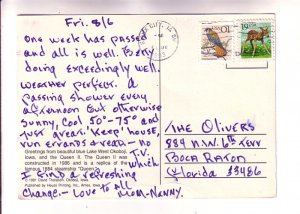 Fri. 8/6
One week has passed
and all is well. Berry
doing exceedingly well.
Weather perfect. A
passing shower every
afternoon but otherwise
sunny, cool 50°-75° and
just great. Keep house,
run errands & read - no
T.V. which
I find a refreshing
change - Love to all
Mom-Nanny.
Greetings from beautiful blue Lake West Okoboji,
Iowa, and the Queen II. The Queen II was
constructed in 1986 and is a replica of the
famous 1884 steamship "Queen".
The Olivers
889 N.W. 6th Terr
Boca Raton
Florida 33486